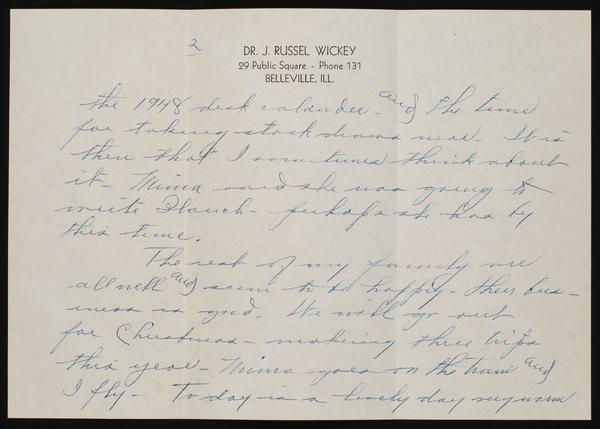 2
DR. J. RUSSEL WICKEY
29 Public Square - Phone 131
BELLEVILLE, ILL.
the 1948 desk calander - and the time
for taking stock draws near - It is
then that I sometimes think about
it - Minna said she was going to
write Blanch - perhaps she has by
this time.
The rest of my family are
all well and seem to be happy - their bus-
iness is good. We will go out
for Christmas - making three trips
this year - Minna goes on the train and
I fly - To day is a lovely day very warm